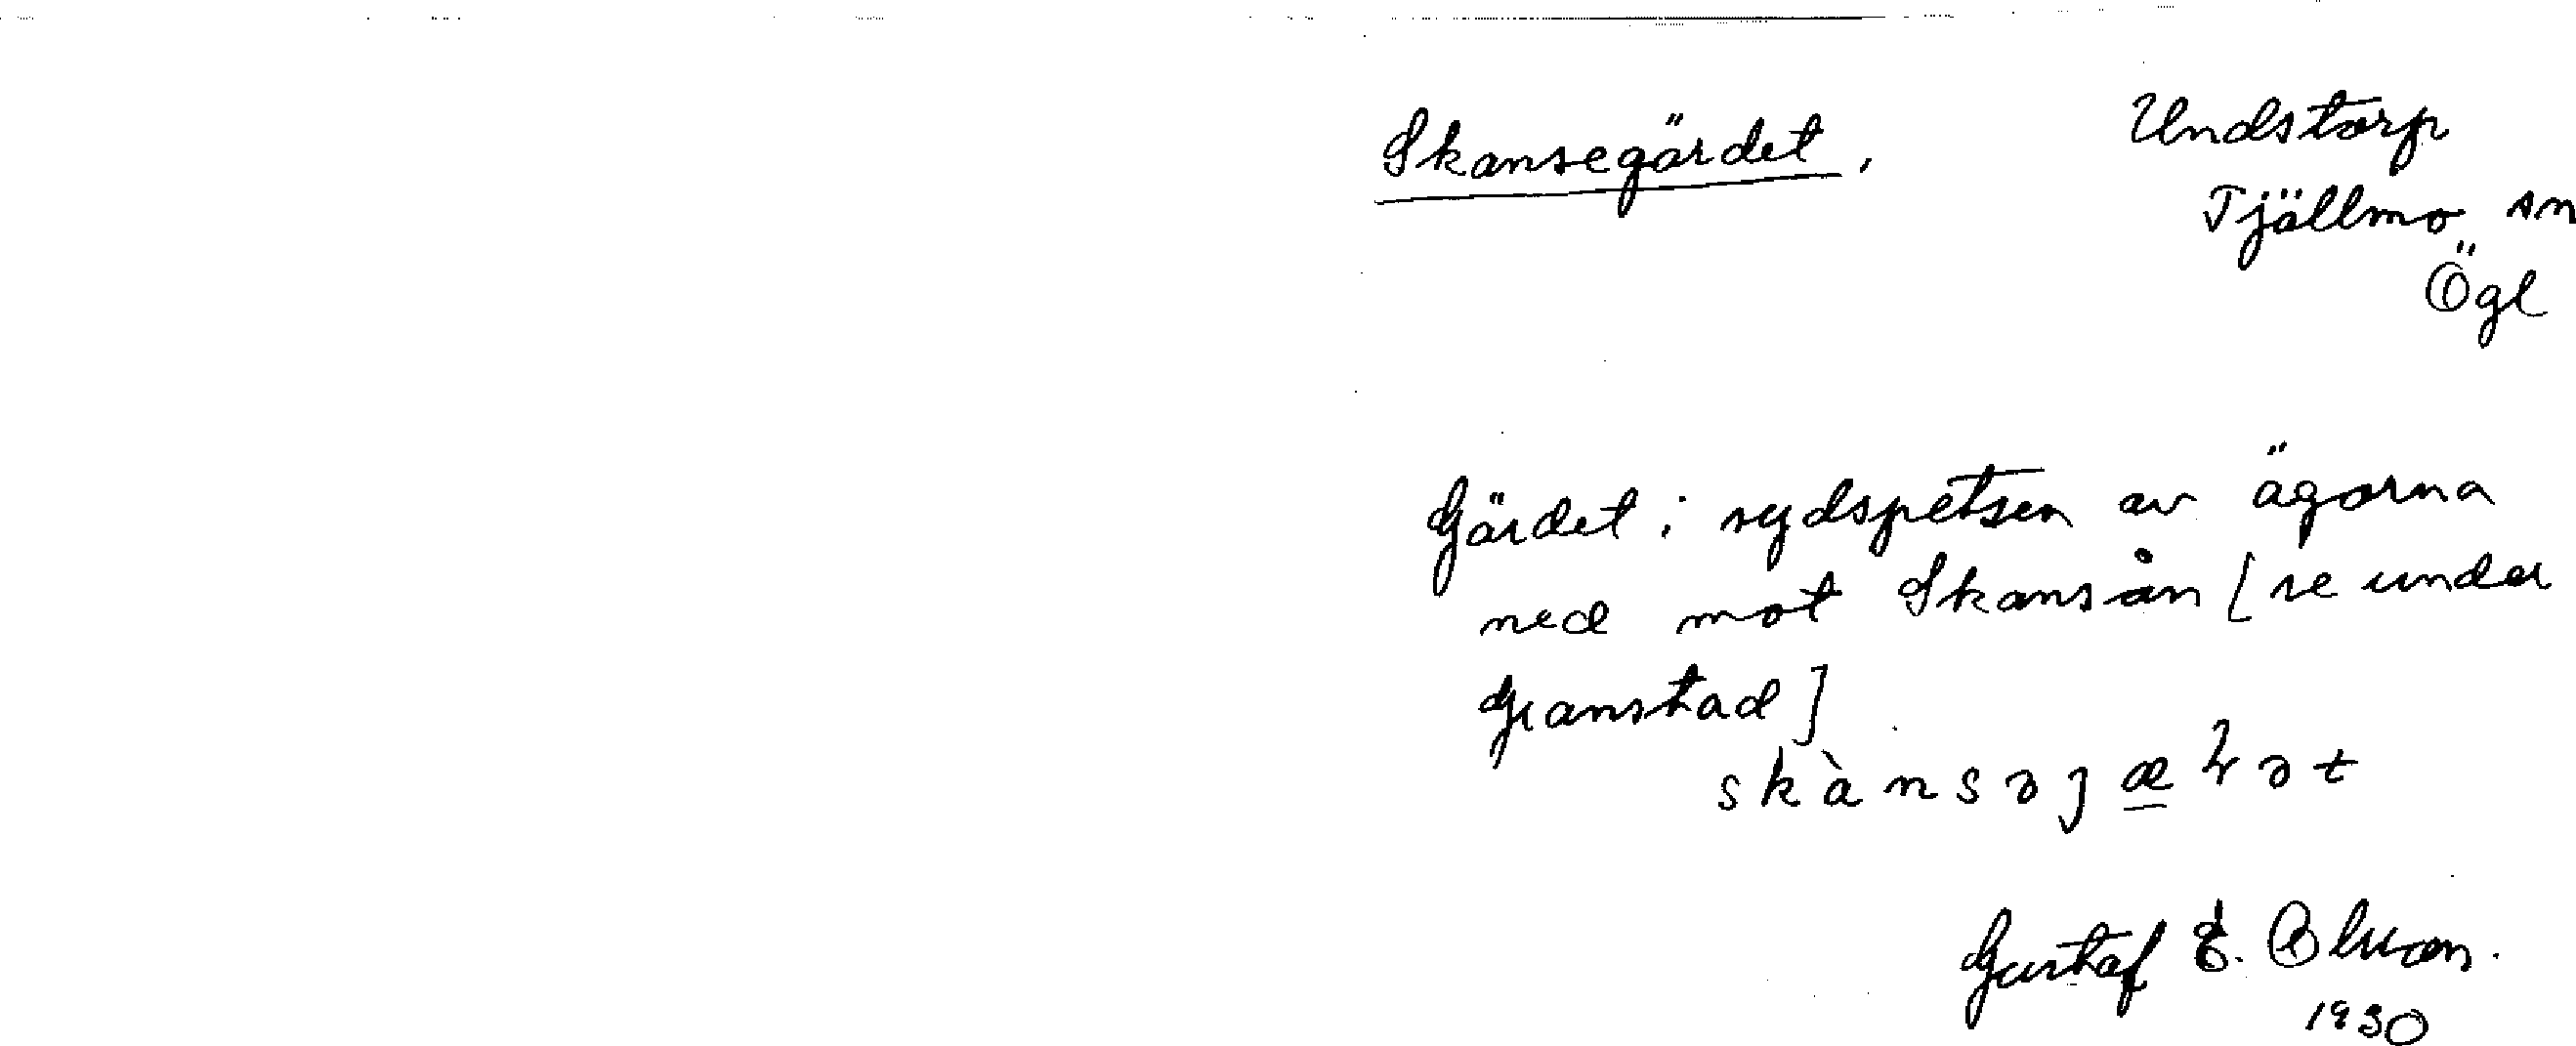 Skansegärdet.
Undstorp
Tjällmo sn
Ögl
Gärdet i sydspetsen av ägorna
ned mot Skansån [se under
Granstad]
Gustaf E. Olsson.
1930